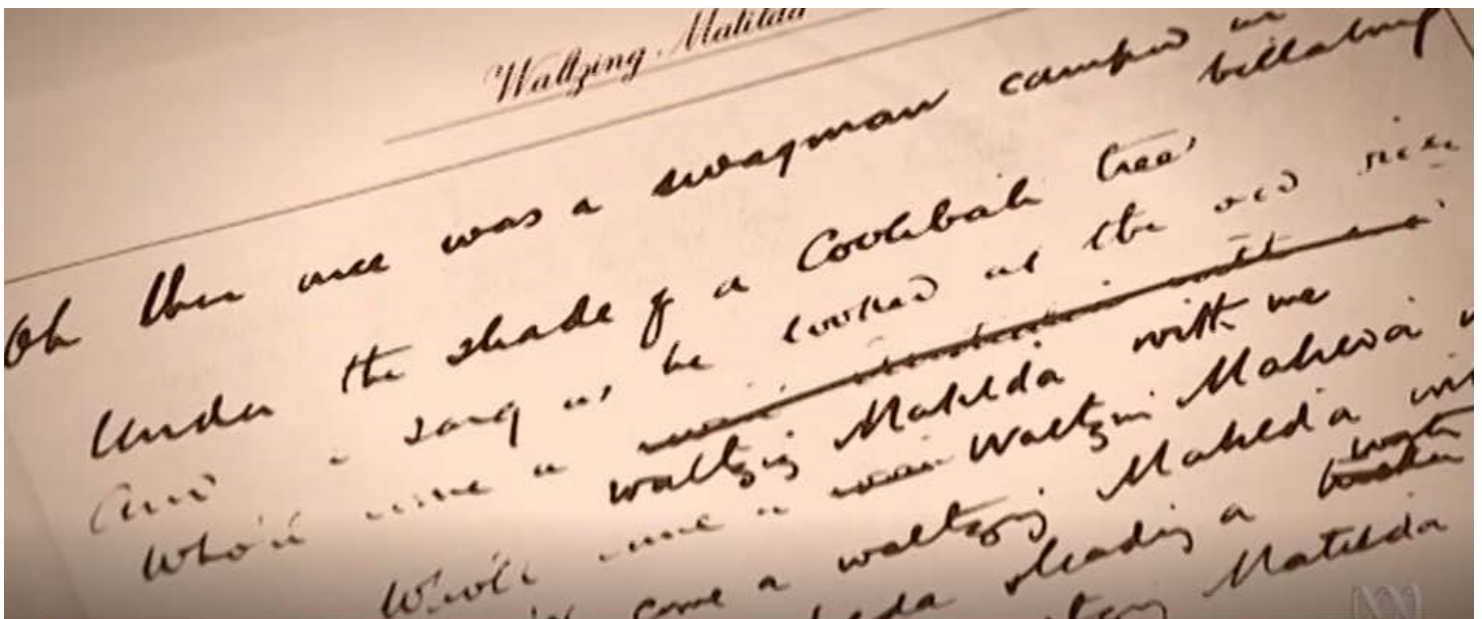 Waltzing Matilda
Oh there once was a swagman camped in
billabong
Under the shade of a Coolibah tree
And sang as he looked at the old
Who'll come a
waltzing Matilda with me
Who'll come a Waltzin Matilda
come a waltzing Matilda
leading a water
Matilda